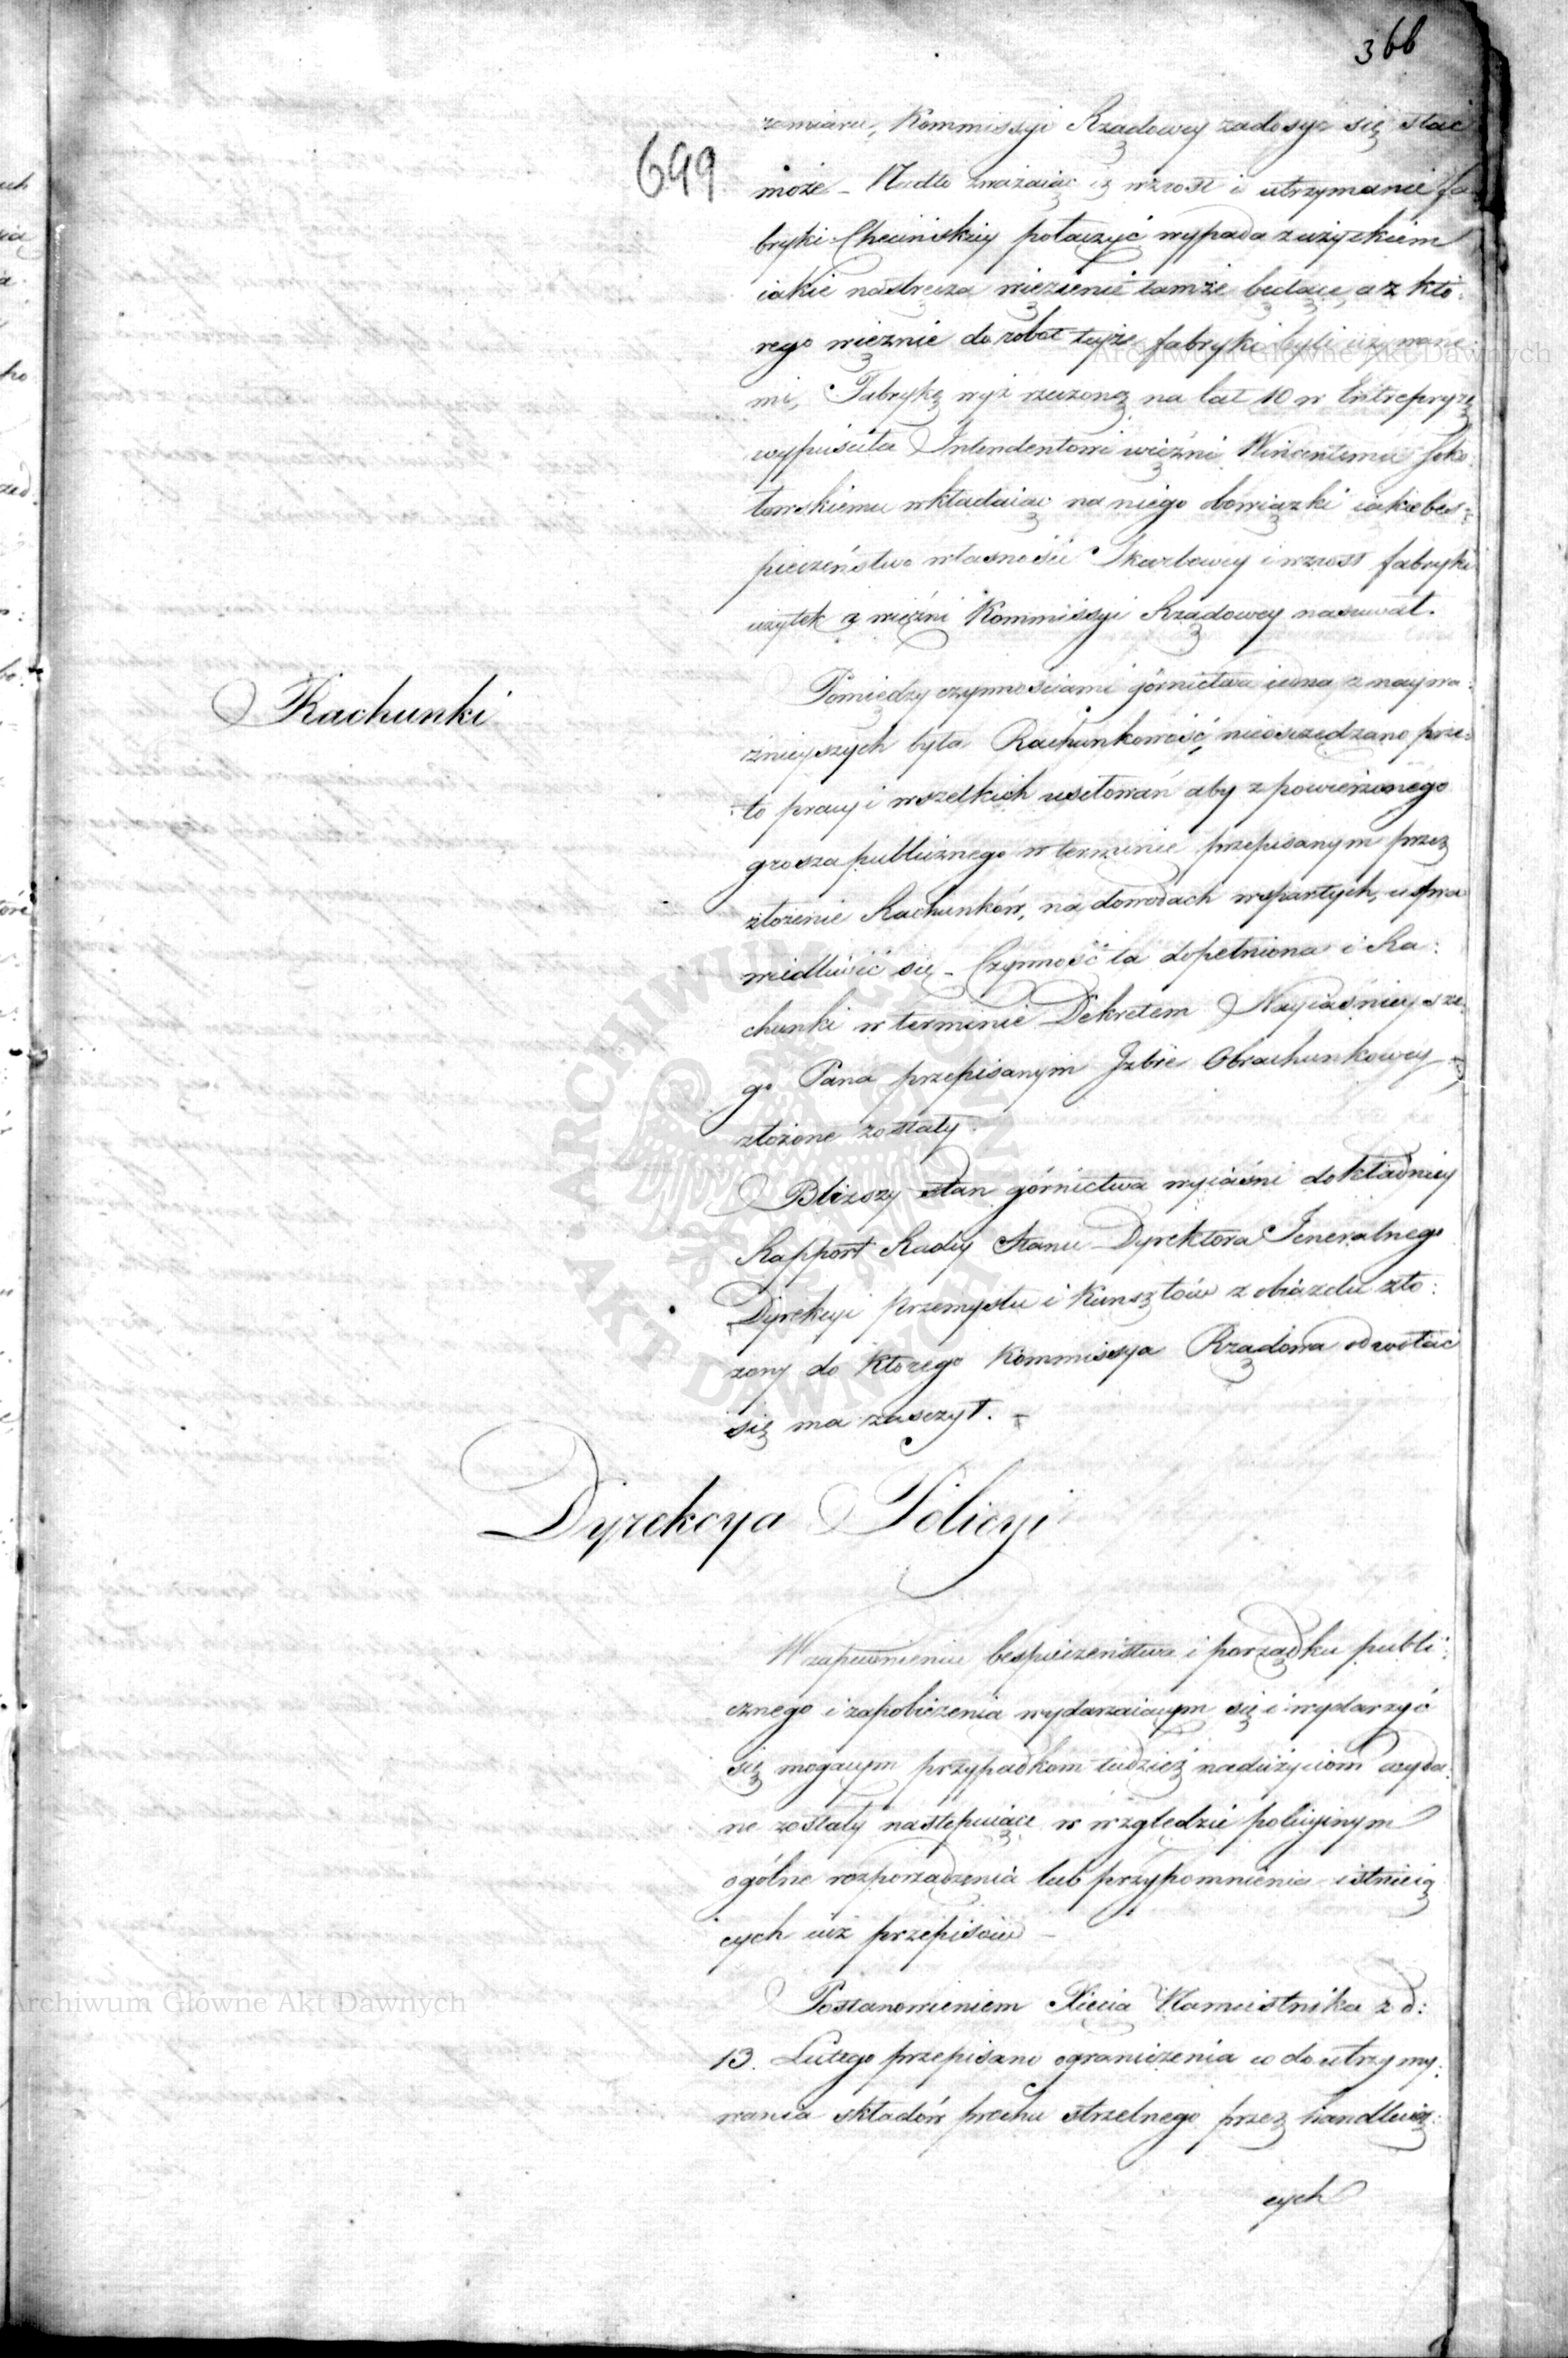 366
699
zamiaru, Kommissyi Rządowey zadosyć się stać
może – Nadto zważaiąc iż wzrost i utrzymanie fa
bryki Chęcinskiey połączyć wypada z użytkiem
iakie nastręcza więzienie tamże będące, a z któ:
rego więznie do robot teyże fabryki byli używane
mi, Fabrykę wyż rzeczoną na lat 10 w Entrepryzę
wypuściła Intendentowi więźni Wincentemu Soko:
łowskiemu wkładaiąc na niego obowiązki iakie bes=
pieczeństwo własności Skarbowey i wzrost fabryki
użytek z więźni Kommissyi Rządowey nasuwał.
Rachunki
Pomiędzy czynnościami górnictwa iedna z naywa:
żnieyszych była Rachunkowość, nieoszczędzano prze:
to pracy i wszelkich usiłowań aby z powierzonego
grosza publicznego w terminie przepisanym przez
złożenie Rachunków, na dowodach wspartych, uspra
wiedliwić się – Czynność ta dopełniona i Ra:
chunki w terminie Dekretem Nayiaśnieysze:
go Pana przepisanym Izbie Obrachunkowey
złożone zostały.
Bliższy stan górnictwa wyiaśni dokładniey
Rapport Radcy Stanu Dyrektora Jeneralnego
Dyrekcyi przemysłu i Kunsztów z obiazdu zło:
żony do którego Kommissya Rządowa odwołać
się ma zaszczyt. –
Dyrekcya Policyi
W zapewnieniu bespieczeństwa i porządku publi:
cznego i zapobieżenia wydarzaiącym się i wydarzyć
się mogącym przypadkom tudzież nadużyciom wyda:
ne zostały następuiące w względzie policyinym
ogólne rozporządzenia lub przypomnienia istnieią
cych iuż przepisów –
Postanowieniem Xięcia Namiestnika z d:
13. Lutego przepisano ograniczenia co do utrzymy:
wania składów prochu strzelnego przez handluią:
cych